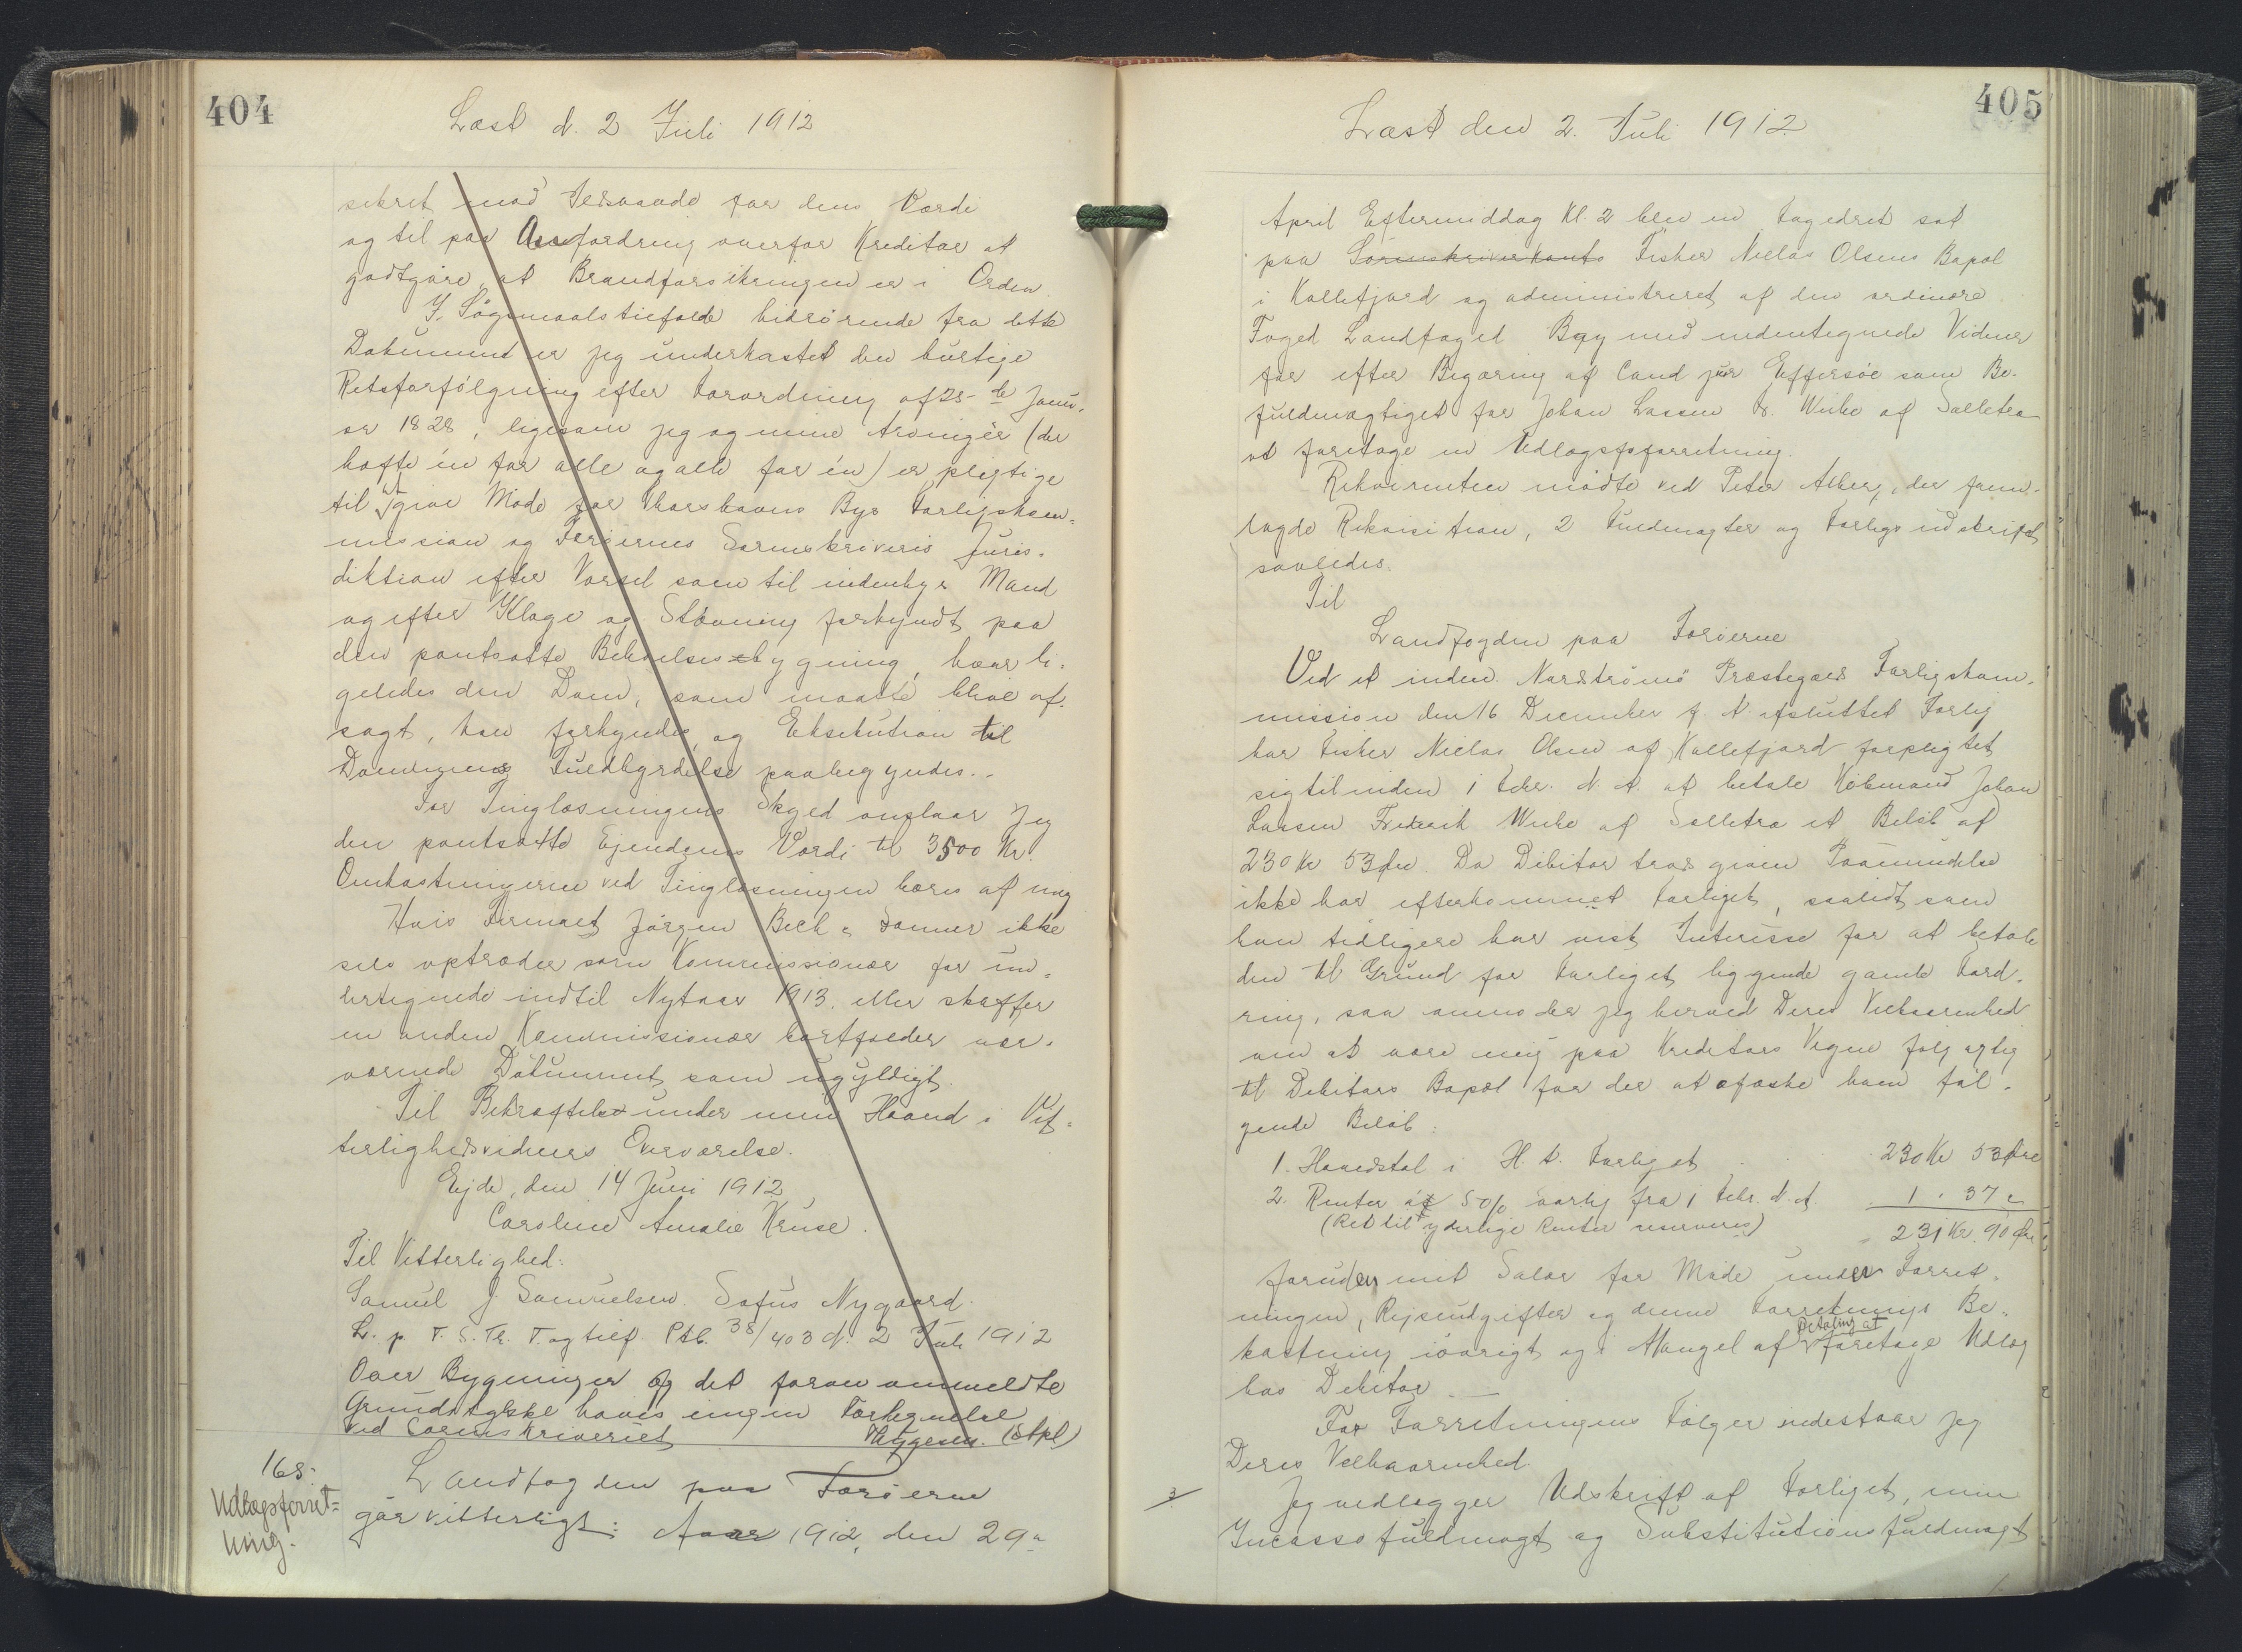 404
Læst d. 2 Juli 1912
sikret mod Ildsvaade for dens Værdi
og til paa Anfordring overfor Kreditor at
godtgøre, at Brandforsikringen er i Orden.
I Søgsmaalstilfælde hidrørende fra dette
Dokument er jeg underkastet den hurtige
Retsforfølgning efter Forordning af 25-de Janu-
ar 1828, ligesom jeg og mine Arvinger (der
hæfte én for alle og alle for én) er pligtige
til at give Møde for Thorshavns Bys Forligskom-
mission og Færøernes Sorenskriveris Juris-
diktion efter Varsel som til indenbys Mand
og efter Klage og Stævning forkyndt paa
den pantsatte Beboelsesbygning, hvor li-
geledes den Dom, som maatte blive af-
sagt, kan forkyndes, og Eksekution til
Dommens Fuldbyrdelse paabegyndes.
For Tinglæsningens Skyld anslaar Jeg
den pantsatte Ejendoms Værdi til 3500 Kr.
Omkostningerne ved Tinglæsningen bæres af mig
Hvis Firmaet Jørgen Bech & Sønner ikke
selv optræder som Kommissionær for un-
dertegnede indtil Nytaar 1913 eller skaffer
en anden Kommissionær bortfalder nær-
værende Dokument som ugyldigt.
Til Bekræftelse under min Haand i Vit-
terlighedsvidners Overværelse.
Ejde, den 14 Juni 1912
Caroline Amalie Kruse.
Til Vitterlighed:
Samuel J. Samuelsen. Sofus Nygaard.
L. p. T. S. Th. T. og tilf. Ptb. 38/403 d. 2 Juli 1912
Over Bygninger og det foran ommeldte
Grundstykke haves ingen Fortegnelse
ved Sorenskriveriet (Stpl)
168.
Udlægsforret-
ning.
Landfogden paa Færøerne
gør vitterligt: Aar 1912, den 29.
405
Læst den 2. Juli 1912
April Eftermiddag Kl. 2 blev en Fogedret sat
paa Sorenskriverkonto Fisker Niclas Olsens Bopæl
i Kollefjord og administreret af den ordinære
Foged Landfoged Bøy med undertegnede Vidner
for efter Begæring af Cand jur Effersøe som Be-
fuldmægtiget for Johan Lassen Fr. Weihe af Selletræ
at foretage en Udlægsforretning.
Rekvirenten mødte ved Peter Alberg, der frem-
lagde Rekvisition, 2 Fuldmagter og Forligsudskrift
saaledes.
Til
Landfogden paa Færøerne
Ved et inden Nordstrømø Præstegælds Forligskom-
mission den 16 December f. A. afsluttet Forlig
har Fisker Niclas Olsen af Kollefjord forpligtet
sig til inden 1 Febr. d. A. at betale Købmand Johan
Lassen Frederik Weihe af Selletræ et Beløb af
230 Kr 53 Øre. Da Debitor trods given Paamindelse
ikke har efterkommet Forliget, saalidt som
han tidligere har vist Interesse for at betale
den til Grund for Forliget liggende gamle Ford-
ring, saa anmoder jeg herved Deres Velbaarenhed
om at være mig paa Kreditors Vegne følgagtig
til Debitors Bopæl for der at afæske ham føl-
gende Beløb:
1. Hovedstol i H. t. Forliget . . 230 Kr 53 Øre
2. Renter af 5% aarlig fra 1 Febr. d. A. 1 " 37 "
(Ret til yderlige Renter reserveres) 231 Kr. 90 Øre
foruden mit Salær for Møde under Forret-
ningen, Rejseudgifter og denne Forretnings Be-
kostning iøvrigt og i Mangel af Betaling at foretage Udlæg
hos Debitor.
For Forretningens Følger indestaar jeg
Deres Velbaarenhed.
Jeg vedlægger Udskrift af Forliget, min
Incassofuldmagt og Substitutionsfuldmagt